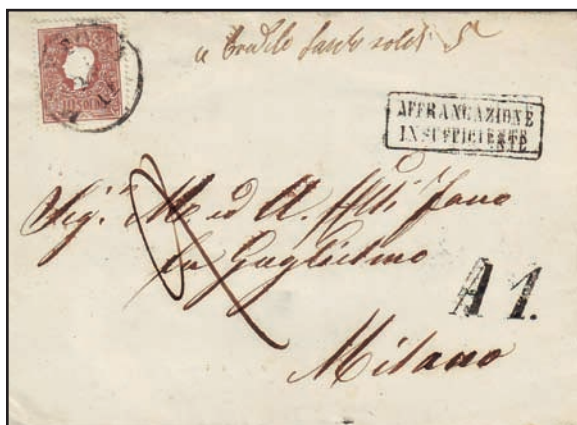 10 SOLDI
a soldi 5
AFFRANCAZIONE
INSUFFICIENTE
Sig.ri M ed A.
fu Guglielmo
A 1.
Milano